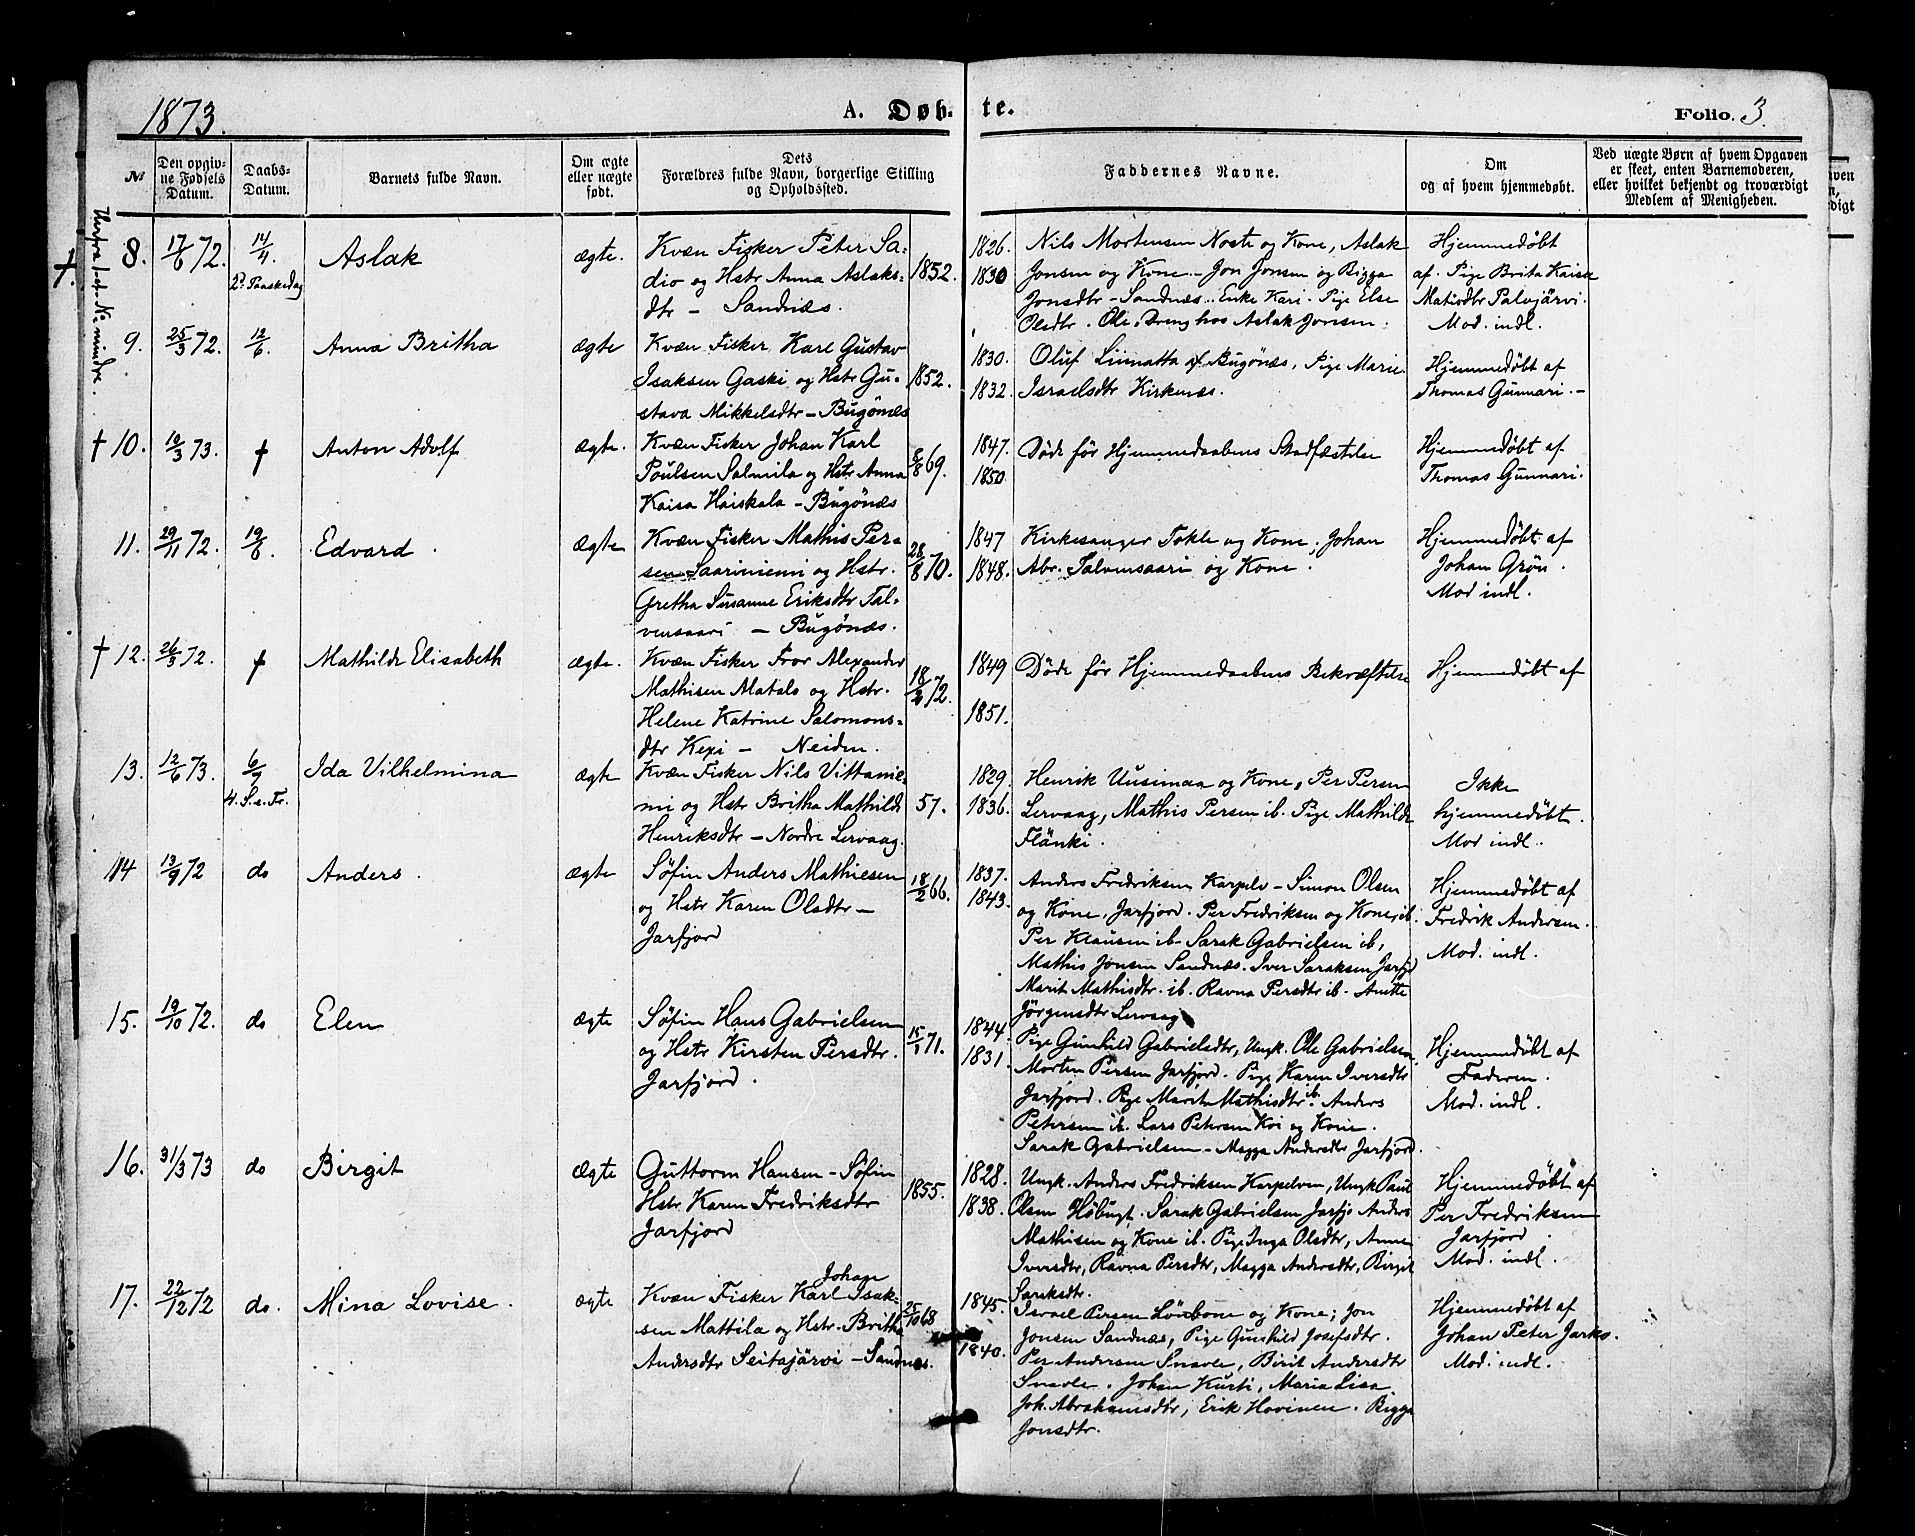 1873.
A. Døb-
te.
Folio. 3.
№
Den opgiv-
ne Fødsels
Datum.
Daabs-
Datum.
Barnets fulde Navn.
Om ægte
eller uægte
født.
Dets
Forældres fulde Navn, borgerlige Stilling
og Opholdssted.
Faddernes Navne.
Om
og af hvem hjemmedøbt.
Ved uægte Børn af hvem Opgaven
er skeet, enten Barnemoderen,
eller hvilket bekjendt og troværdigt
Medlem af Menigheden.
Herfra 1 et No mindre.
† 8.
17/6 72.
14/4.
2d Paaskedag
Aslak
ægte.
Kvæn Fisker Peter Sa-
dio og Hstr Anna Aslaks-
dtr – Sandnæs.
1852.
1826.
1830
Nils Mortensen Noste og Kone, Aslak
Jonsen og Kone – Jon Jonsen og Bigga
Jonsdtr – Sandnæs. Enke Kari. Pige Else
Olsdtr. Ole, Dreng hos Aslak Jonsen.
Hjemmedøbt
af. Pige Brita Kaisa
Matisdtr Palojärvi.
Mod. indl.
9.
25/3 72.
12/6.
Anna Britha
ægte
Kvæn Fisker Karl Gustav
Isaksen Gaski og Hstr Gu-
stava Mikkelsdtr – Bugönæs
1852.
1830.
1832.
Oluf Liimatta af Bugönæs, Pige Marie
Israelsdtr Kirkenæs.
Hjemmedøbt af
Thomas Gunnari. –
† 10.
10/3 73.
†
Anton Adolf
ægte.
Kvæn Fisker Johan Karl
Poulsen Salmila og Hstr Anna
Kaisa Haiskala – Bugönæs
8/8 69.
1847.
1850.
Døde før Hjemmedaabens Stadfæstelse
Hjemmedøbt af
Thomas Gunnari.
11.
29/11 72.
19/6.
Edvard.
ægte
Kvæn Fisker Mathis Per-
sen Saariniemi og Hstr.
Gretha Susanne Eriksdtr Tal-
vensaari – Bugönæs.
28/8 70.
1847
1848.
Kirkesanger Tokle og Kone, Johan
Abr. Talvensaari og Kone.
Hjemmedøbt af
Johan Grön.
Mod indl.
† 12.
26/3 72.
†
Mathilde Elisabeth
ægte.
Kvæn Fisker Fror Alexander
Mathisen Matals og Hstr.
Helene Katrine Salomons-
dtr Kexi – Neiden.
18/2 72.
1849
1851.
Døde før Hjemmedaabens Bekræftelse
Hjemmedøbt af
13.
12/6 73.
6/7
4. S. e. Tr.
Ida Vilhelmina
ægte
Kvæn Fisker Nils Vittanie-
mi og Hstr Britha Mathilde
Henriksdtr – Nordre Lervaag.
57.
1829.
1836.
Henrik Uusimaa og Kone, Per Persen
Lervaag, Mathis Persen ib. Pige Mathilde
Flänki.
Ikke
hjemmedøbt.
Mod indl.
14
13/9 72
do
Anders.
ægte
Søfin Anders Mathiesen
og Hstr Karen Olsdtr –
Jarfjord
18/2 66.
1837.
1843.
Anders Fredriksen Karpelv – Simon Olsen
og Kone, Jarfjord. Per Fredriksen og Kone, ib.
Per Klausen ib – Sarak Gabrielsen ib,
Mathis Jonsen Sandnæs. Iver Saraksen Jarfjd
Marit Mathisdtr. ib. Ravna Persdtr ib. Anette
Jörgensdtr Lervaag
Hjemmedøbt af
Fredrik Andersen.
Mod. indl.
15.
19/10 72.
do
Elen
ægte
Søfin Hans Gabrielsen
og Hstr Kirsten Persdtr.
Jarfjord.
15/1 71.
1844.
1831.
Pige Gunhild Gabrielsdtr, Ungk. Ole Gabrielsen
Morten Persen Jarfjord. Pige Karen Iversdtr
Jarfjord. Pige Marit Mathisdtr ib. Anders
Petersen ib. Lars Petersen Koi og Kone.
Sarak Gabrielsen – Magga Andersdtr Jarfjord.
Hjemmedøbt af
Faderen.
Mod. indl.
16.
31/3 73
do
Birgit
ægte
Guttorm Hansen – Søfin
Hstr Karen Fredriksdtr
Jarfjord
1855.
1828.
1838.
Ungk. Anders Fredriksen Karpelven, Ungk Paul
Olsen Höbugt. Sarak Gabrielsen Jarfjo Anders
Mathisen og Kone ib. Pige Inga Olsdtr, Anne
Iversdtr, Ravna Persdtr, Magga Andersdtr, Birgit
Saraksdtr.
Hjemmedøbt af
Per Fredriksen
Jarfjord.
Mod. indl.
17.
22/12 72
do.
Mina Lovise.
ægte
Johan
Kvæn Fisker Karl Isak-
sen Mattila og Hstr. Britha
Andersdtr Seitajärvi – Sandnæs.
25/10 68
1845.
1840.
Israel Persen Lönbone og Kone; Jon
Jonsen Sandnæs, Pige Gunhild Josefsdtr.
Per Andersen Snave, Birit Andersdtr
Snave. Johan Kurti, Maria Lisa
Joh. Abrahamsdtr, Erik Hovinen. Bigga
Jonsdtr.
Hjemmedøbt af
Johan Peter Jarko.
Mod. indl.